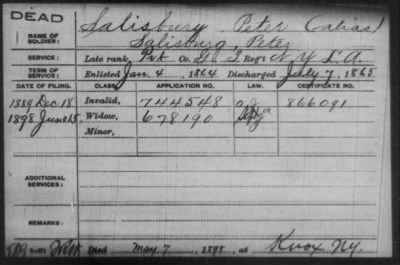 DEAD
NAME OF SOLDIER:
Salisbury Peter (alias)
Salisburg, Peter
SERVICE:
Late rank, Pvt Co. G. 3 Reg't N Y L A.
TERM OF SERVICE:
Enlisted Jan. 4 1864 Discharged July 7, 1865
DATE OF FILING. CLASS. APPLICATION NO. LAW. CERTIFICATE NO.
1889 Dec. 18. Invalid, 744548 866091
1898 June 15, Widow, 678190
Minor,
ADDITIONAL SERVICES:
REMARKS:
Died May 7, 1898, at Knox N.Y.